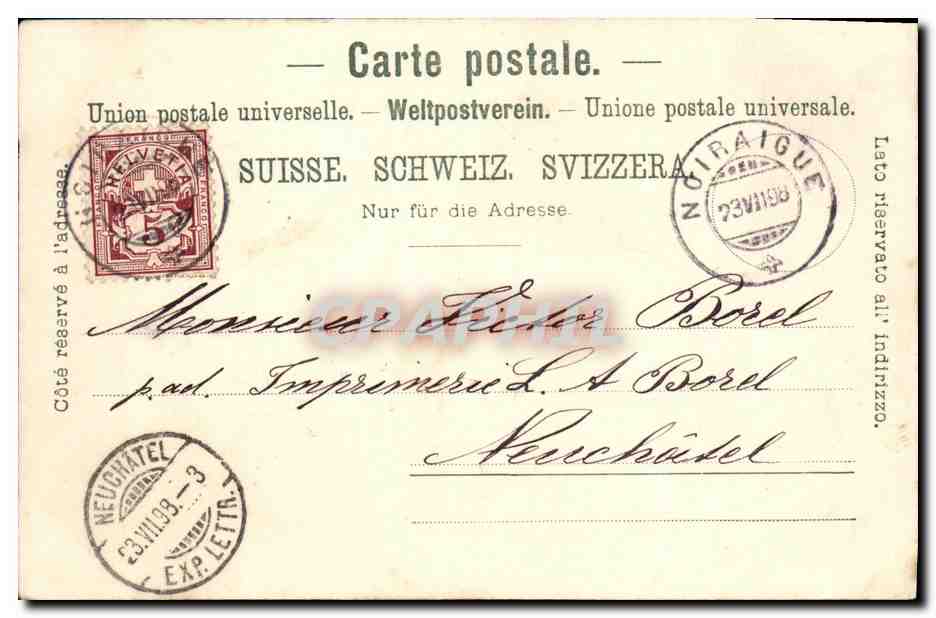 — Carte postale. —
Union postale universelle. — Weltpostverein. — Unione postale universale.
SUISSE. SCHWEIZ. SVIZZERA.
Nur für die Adresse.
Côté réservé à l'adresse.
Lato riservato all' indirizzo.
FRANCO
HELVETIA
5
NOIRAIGUE
23 VII 98
Monsieur Victor Borel
p. ad. Imprimerie L. A Borel
Neuchâtel
NEUCHÂTEL
23.VII.98.–3
EXP. LETTR.
CPAPHIL